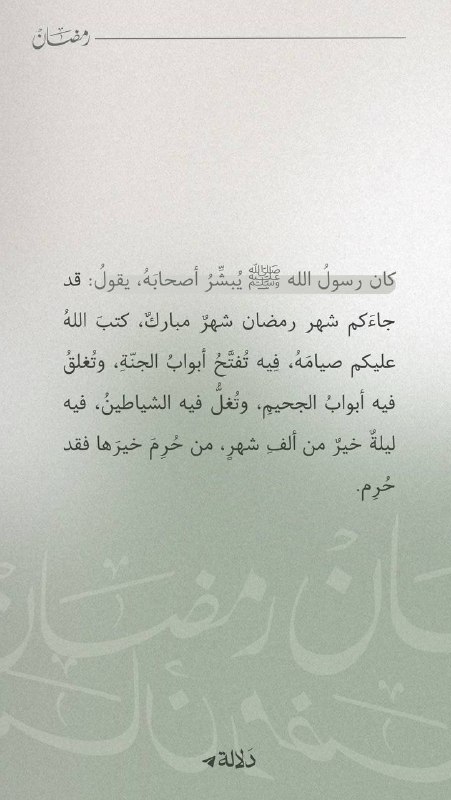 رمضان
كان رسولُ الله ﷺ يُبشِّرُ أصحابَهُ، يقولُ: قد
جاءَكم شهر رمضان شهرٌ مباركٌ، كتبَ اللهُ
عليكم صيامَهُ، فِيه تُفتَّحُ أبوابُ الجنّةِ، وتُغلقُ
فيه أبوابُ الجحيمِ، وتُغلُّ فيه الشياطينُ، فيه
ليلةٌ خيرٌ من ألفِ شهرٍ، من حُرِمَ خيرَها فقد
حُرِم.
رمضان
دَلالة